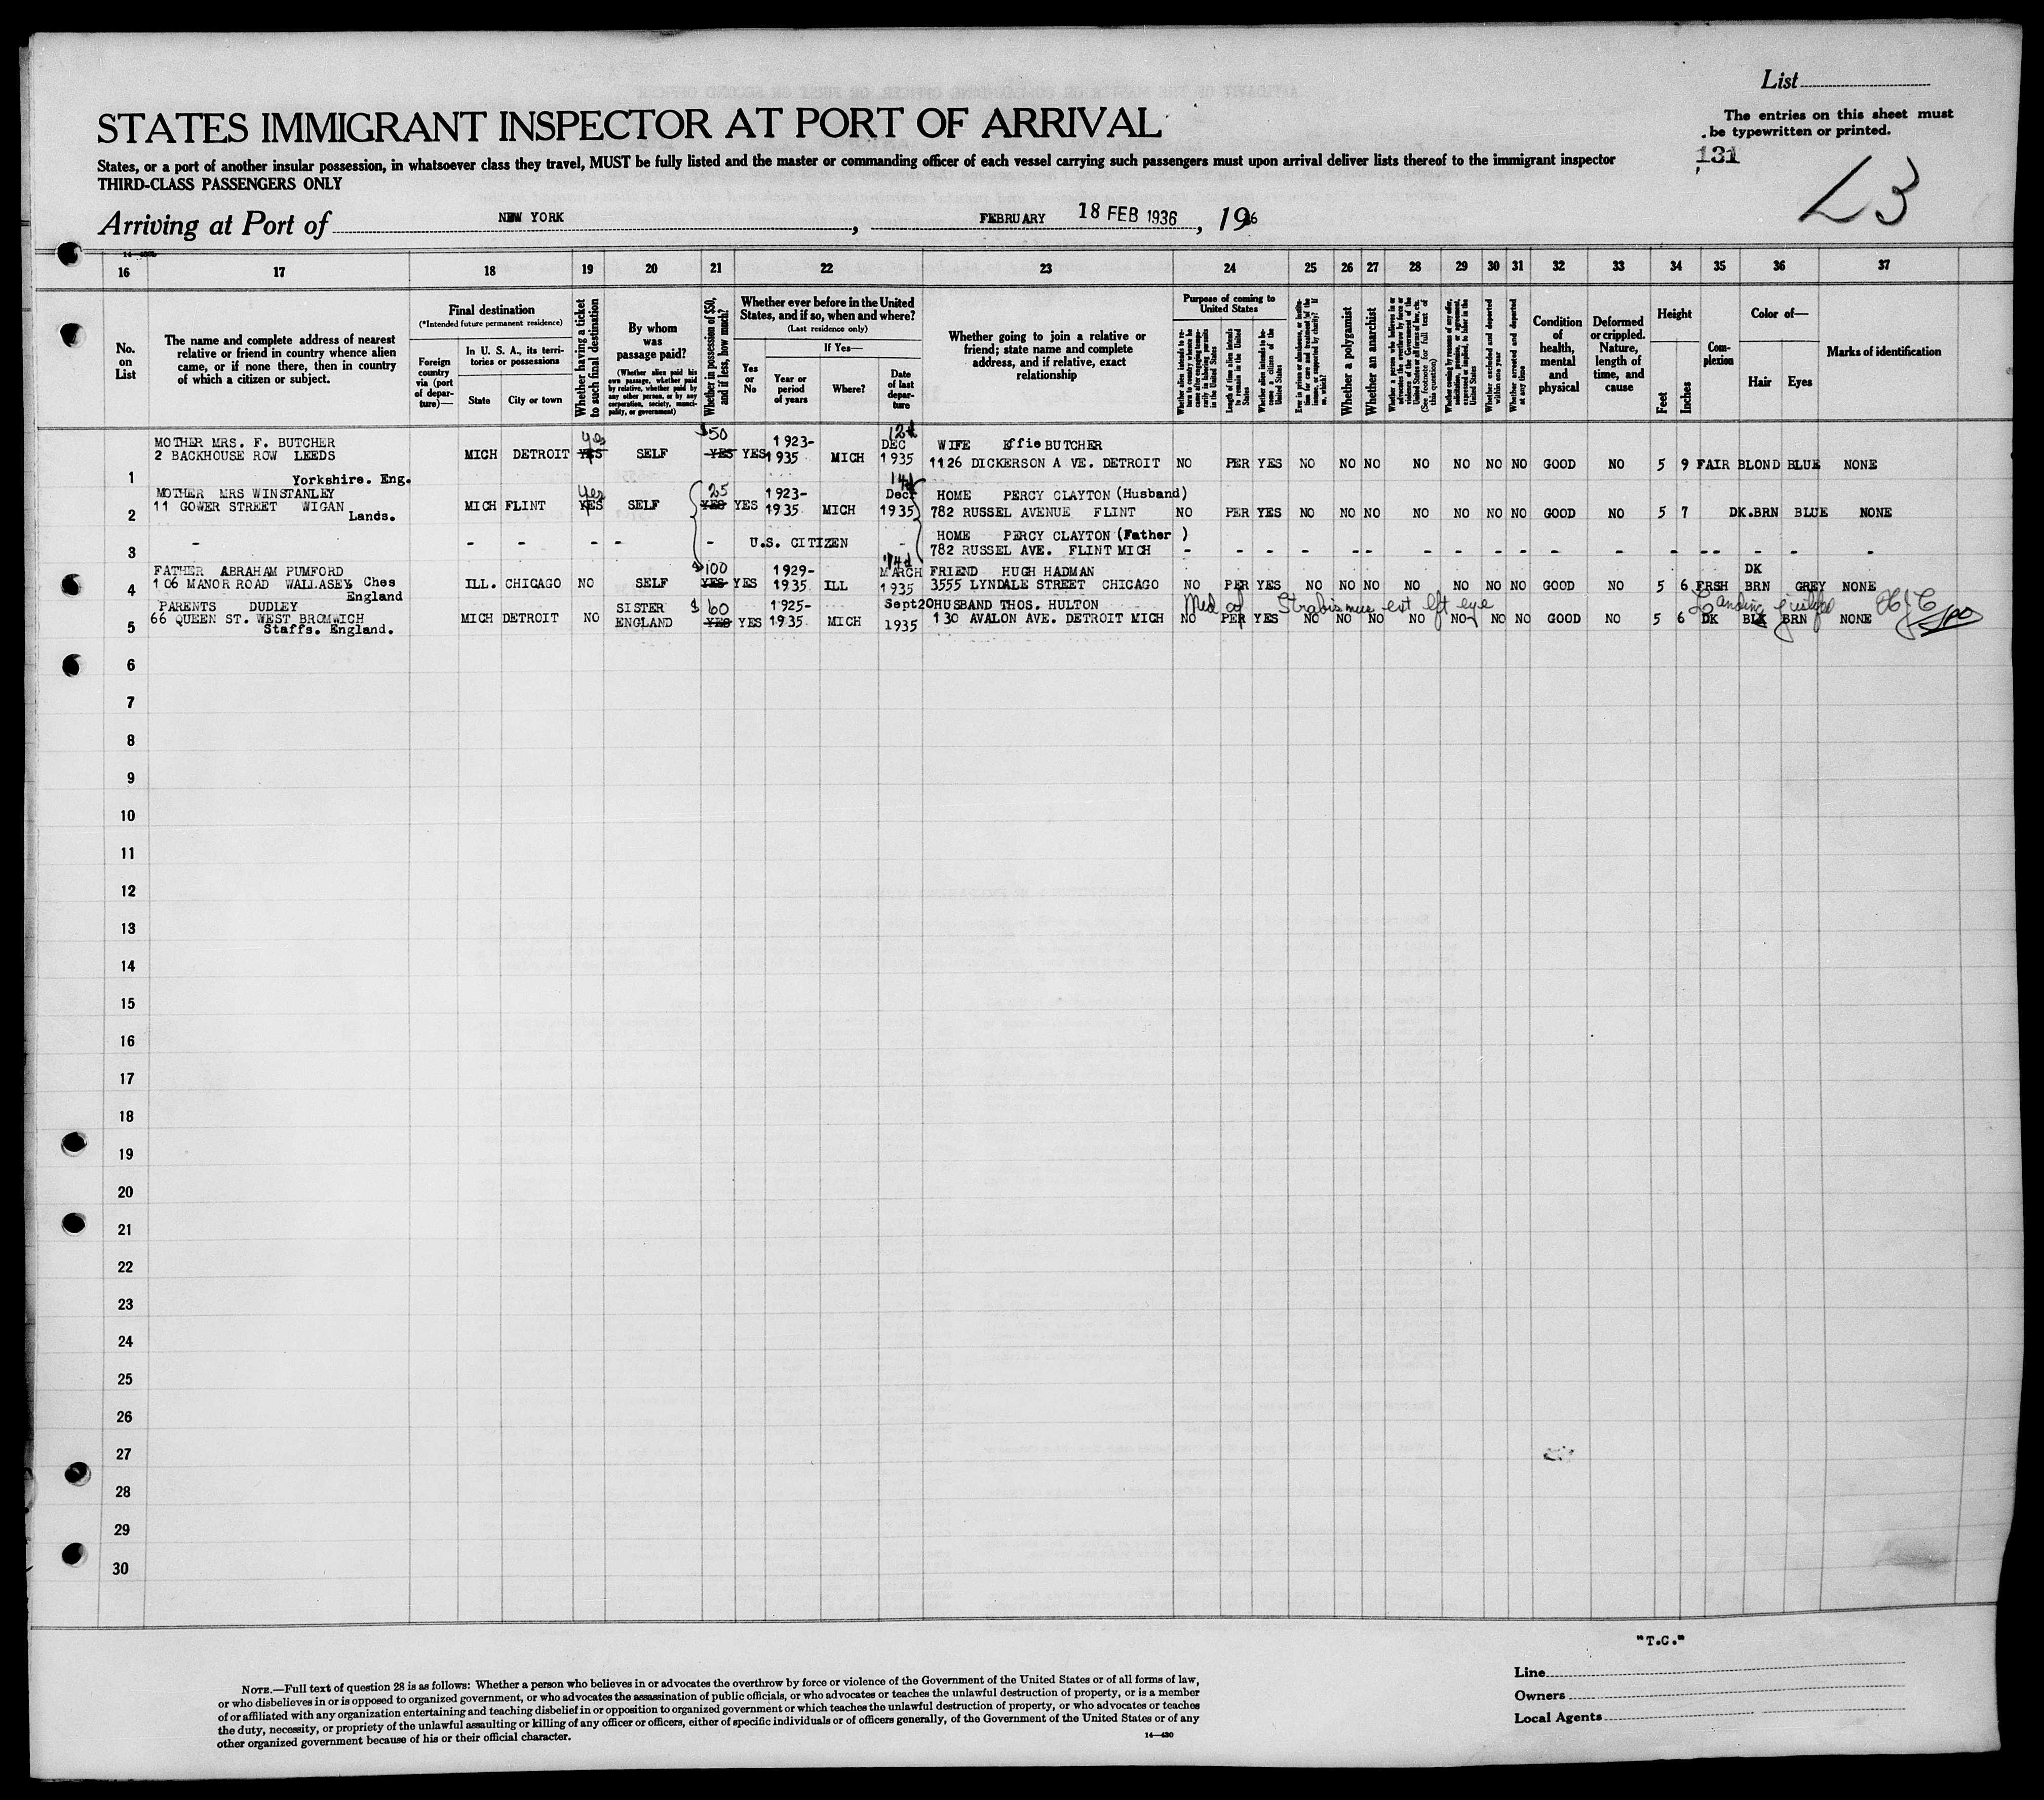 List
The entries on this sheet must
be typewritten or printed.
131
L3
STATES IMMIGRANT INSPECTOR AT PORT OF ARRIVAL
States, or a port of another insular possession, in whatsoever class they travel, MUST be fully listed and the master or commanding officer of each vessel carrying such passengers must upon arrival deliver lists thereof to the immigrant inspector
THIRD-CLASS PASSENGERS ONLY
Arriving at Port of NEW YORK, FEBRUARY 18 FEB 1936, 1936
16 17 18 19 20 21 22 23 24 25 26 27 28 29 30 31 32 33 34 35 36 37
No. on List
The name and complete address of nearest
relative or friend in country whence alien
came, or if none there, then in country
of which a citizen or subject.
Final destination
(*Intended future permanent residence)
Foreign country via (port of departure)—
In U. S. A., its territories or possessions
State
City or town
Whether having a ticket to such final destination
By whom was passage paid?
(Whether alien paid his own passage, whether paid by relative, whether paid by any other person, or by any corporation, society, municipality, or government)
Whether in possession of $50, and if less, how much?
Whether ever before in the United
States, and if so, when and where?
(Last residence only)
Yes or No
If Yes—
Year or period of years
Where?
Date of last departure
Whether going to join a relative or
friend; state name and complete
address, and if relative, exact
relationship
Purpose of coming to United States
Whether alien intends to return to country whence he came after engaging temporarily in laboring pursuits in the United States
Length of time alien intends to remain in the United States
Whether alien intends to become a citizen of the United States
Whether a polygamist
Whether an anarchist
Whether excluded and deported within one year
Whether arrested and deported at any time
Condition of health, mental and physical
Deformed or crippled. Nature, length of time, and cause
Height
Feet
Inches
Complexion
Color of—
Hair
Eyes
Marks of identification
MOTHER MRS. F. BUTCHER $50 1923- 12d DEC WIFE Effie BUTCHER
1 2 BACKHOUSE ROW LEEDS MICH DETROIT YES yes SELF YES YES 1935 MICH 1935 1126 DICKERSON AVE. DETROIT NO PER YES NO NO NO NO NO NO NO GOOD NO 5 9 FAIR BLOND BLUE NONE
Yorkshire. Eng.
MOTHER MRS WINSTANLEY 25 1923- 14d Dec HOME PERCY CLAYTON (Husband)
2 11 GOWER STREET WIGAN MICH FLINT YES yes SELF YES YES 1935 MICH 1935 782 RUSSEL AVENUE FLINT NO PER YES NO NO NO NO NO NO NO GOOD NO 5 7 DK.BRN BLUE NONE
Lands.
HOME PERCY CLAYTON (Father )
3 - - - - - - U.S. CITIZEN - 782 RUSSEL AVE. FLINT MICH - - - - - - - - - - - - - - - - - - -
FATHER ABRAHAM PUMFORD $100 1929- 14d MARCH FRIEND HUGH HADMAN DK
4 106 MANOR ROAD WALLASEY, Ches ILL. CHICAGO NO SELF YES YES 1935 ILL 1935 3555 LYNDALE STREET CHICAGO NO PER YES NO NO NO NO NO NO NO GOOD NO 5 6 FRSH BRN GREY NONE
England
PARENTS DUDLEY SISTER $60 1925- Sept20 HUSBAND THOS. HULTON Med cf Strabismus ext lft eye Landing justified
5 66 QUEEN ST. WEST BROMWICH MICH DETROIT NO ENGLAND YES YES 1935 MICH 1935 130 AVALON AVE. DETROIT MICH NO PER YES NO NO NO NO NO NO NO GOOD NO 5 6 DK BLK BRN NONE
Staffs. England.
6
7
8
9
10
11
12
13
14
15
16
17
18
19
20
21
22
23
24
25
26
27
28
29
30
"T.C."
Line
Owners
Local Agents
NOTE.—Full text of question 28 is as follows: Whether a person who believes in or advocates the overthrow by force or violence of the Government of the United States or of all forms of law,
or who disbelieves in or is opposed to organized government, or who advocates the assassination of public officials, or who advocates or teaches the unlawful destruction of property, or is a member
of or affiliated with any organization entertaining and teaching disbelief in or opposition to organized government or which teaches the unlawful destruction of property, or who advocates or teaches
the duty, necessity, or propriety of the unlawful assaulting or killing of any officer or officers, either of specific individuals or of officers generally, of the Government of the United States or of any
other organized government because of his or their official character.
14—430